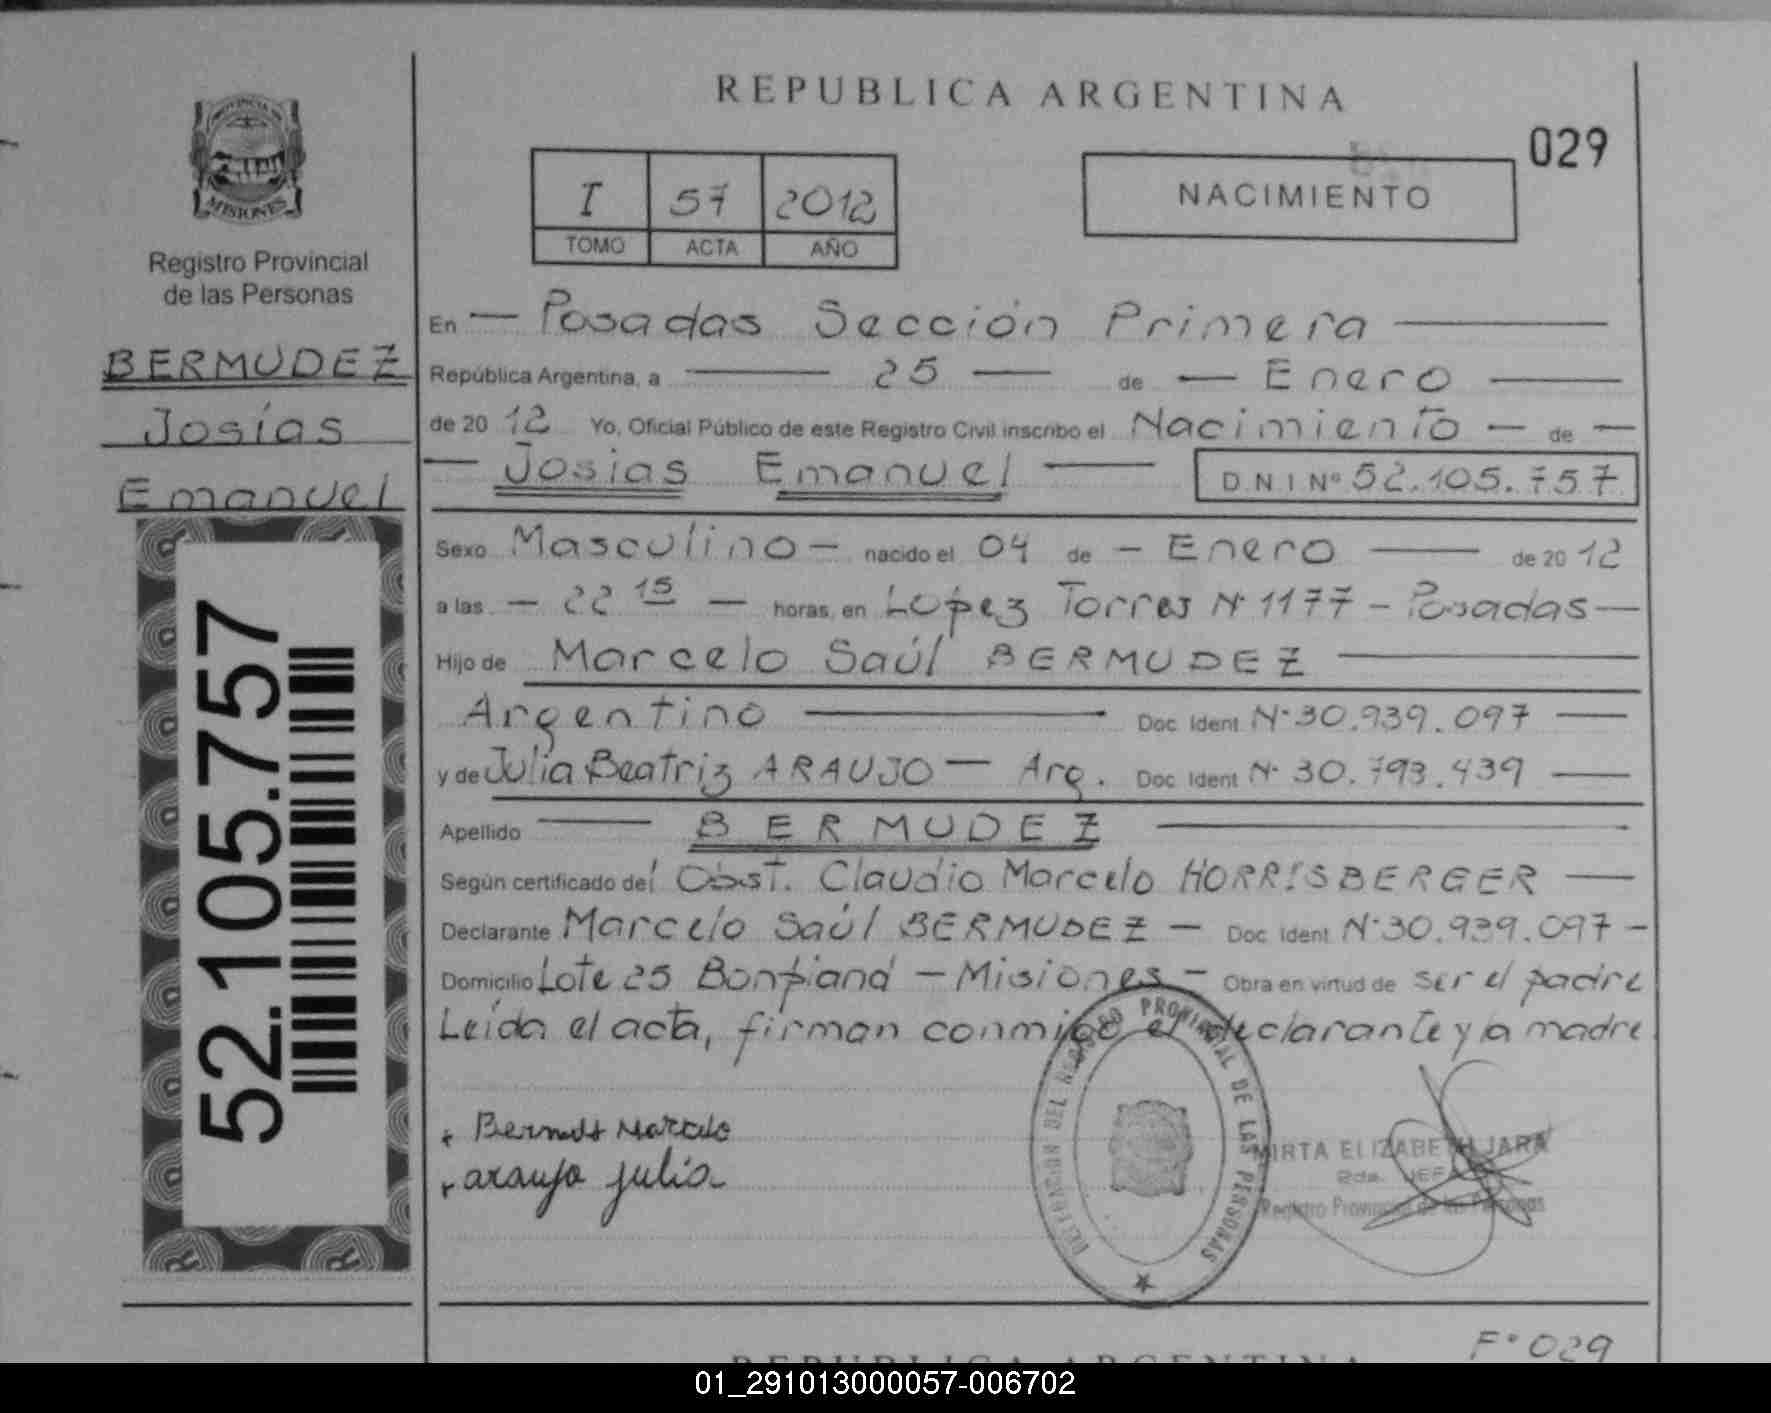 REPUBLICA ARGENTINA
029
PROVINCIA DE
MISIONES
Registro Provincial
de las Personas
BERMUDEZ
Josías
Emanuel
52.105.757
I 57 2012
TOMO ACTA AÑO
NACIMIENTO
En — Posadas Sección Primera —
República Argentina, a — 25 — de — Enero —
de 20 12 Yo, Oficial Público de este Registro Civil inscribo el Nacimiento — de —
— Josías Emanuel — D.N.I Nº 52.105.757
Sexo Masculino — nacido el 04 de — Enero — de 20 12
a las — 22 15 — horas, en Lopez Torres Nº 1177 - Posadas —
Hijo de Marcelo Saúl BERMUDEZ —
Argentino — Doc Ident Nº 30.939.097 —
y de Julia Beatriz ARAUJO — Arg. Doc Ident Nº 30.793.439 —
Apellido — BERMUDEZ —
Según certificado del Obst. Claudio Marcelo HORRISBERGER —
Declarante Marcelo Saúl BERMUDEZ — Doc Ident Nº 30.939.097 —
Domicilio Lote 25 Bonpland — Misiones — Obra en virtud de ser el padre
Leída el acta, firman conmigo el declarante y la madre.
Marcelo
araujo julia
DELEGACION DEL REGISTRO PROVINCIAL DE LAS PERSONAS
MIRTA ELIZABETH JARA
Registro Provincial de las Personas
Fº 029
REPUBLICA ARGENTINA
01_291013000057-006702